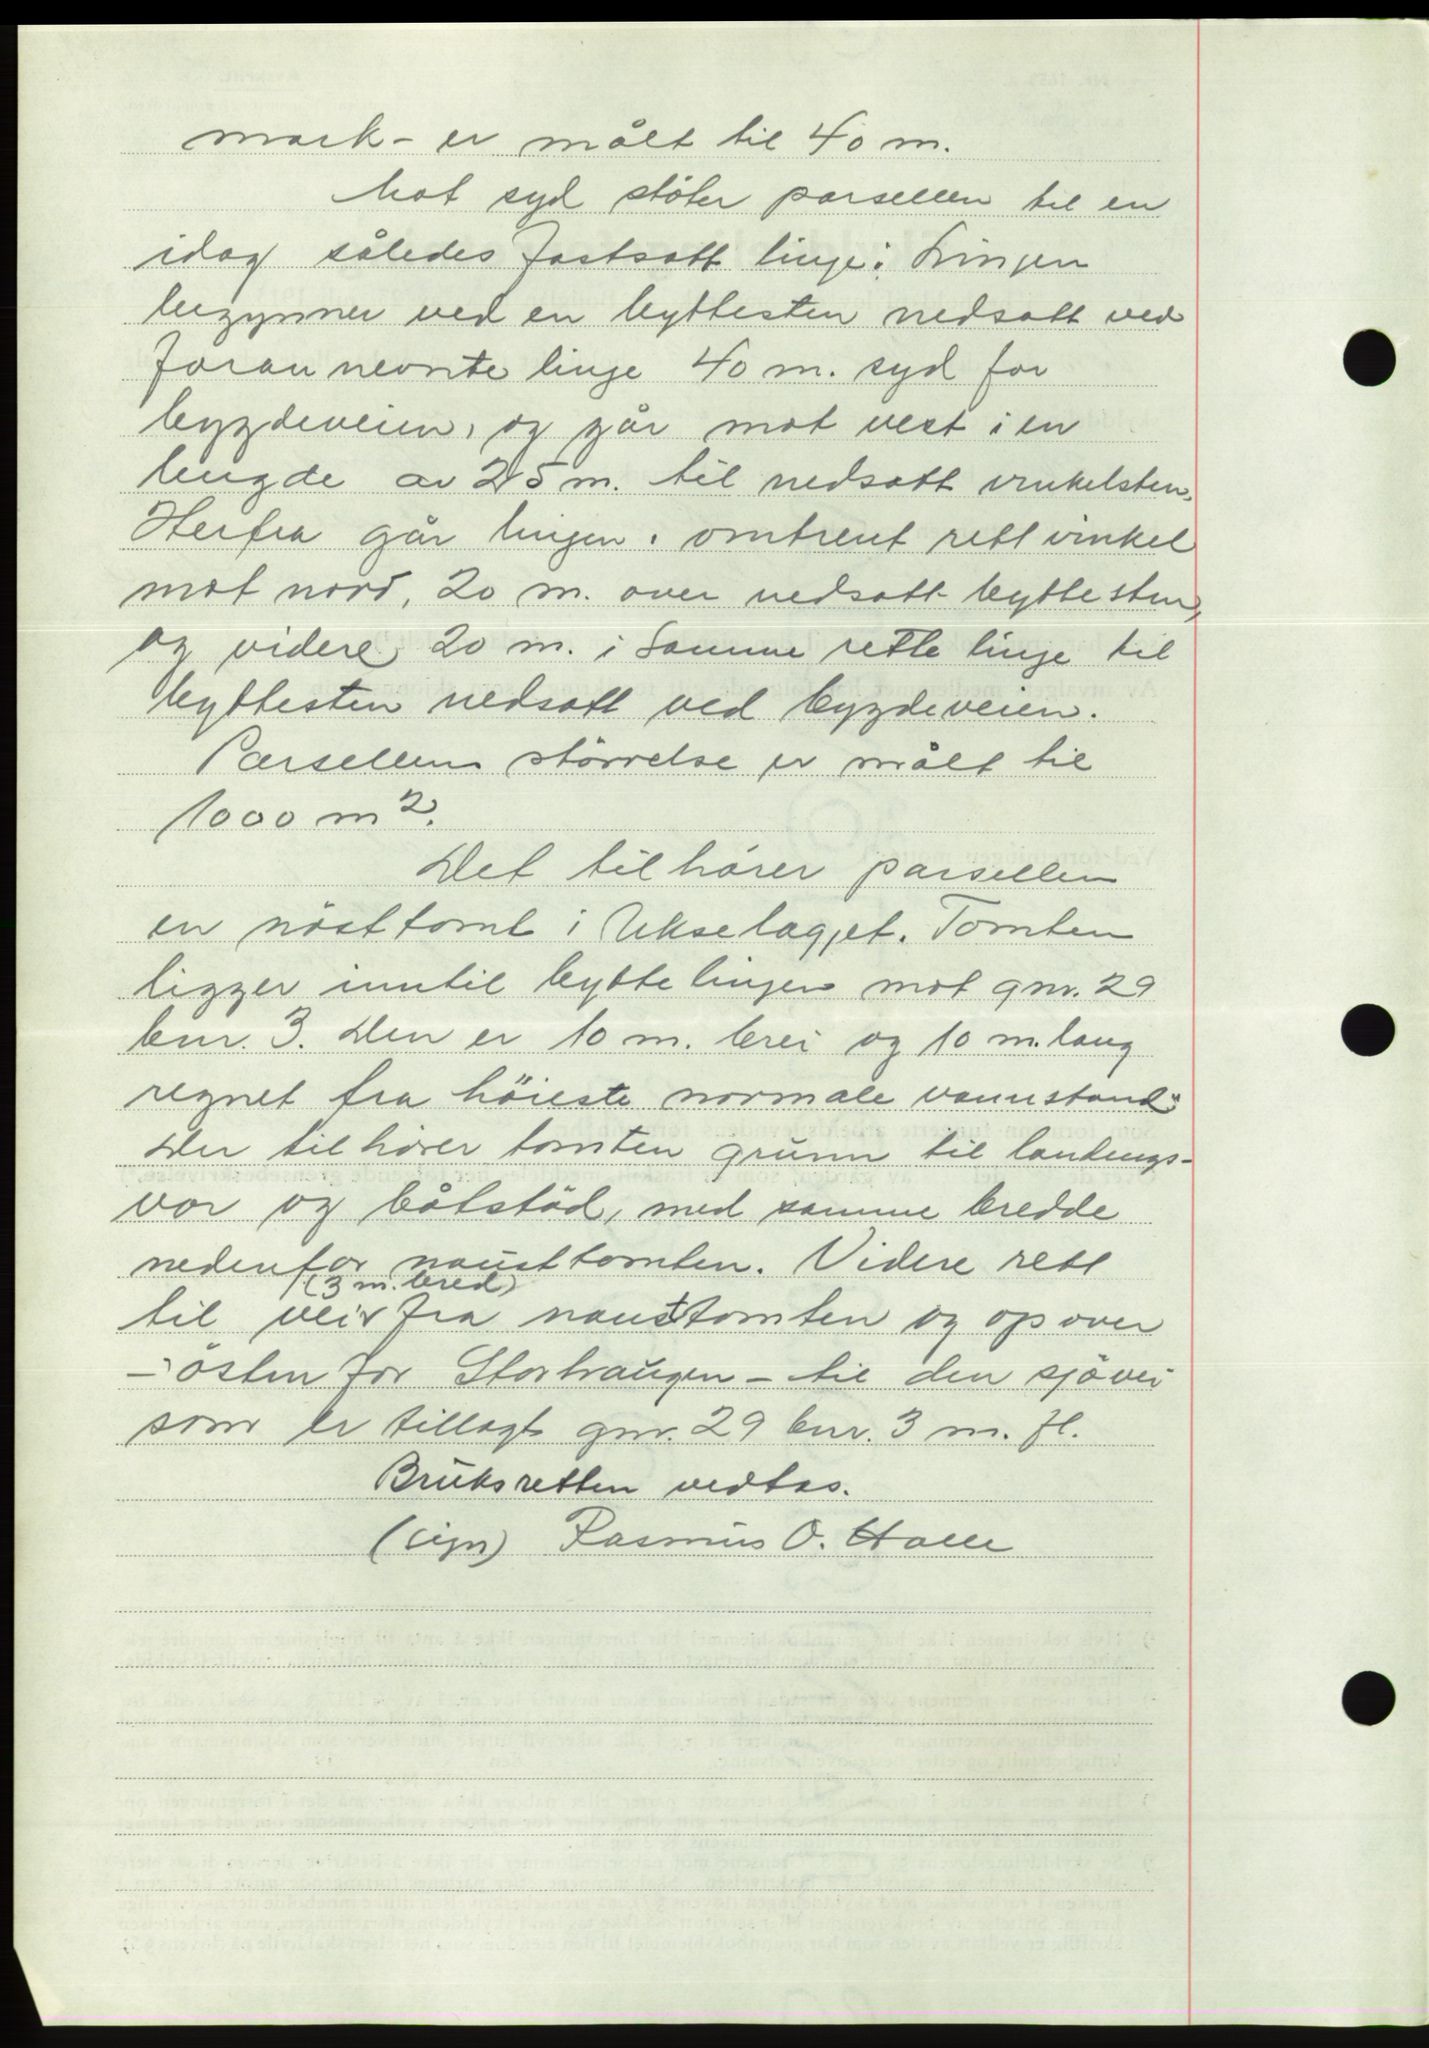 mark - er målt til 40 m.
Mot syd stöter parsellen til en
idag således fastsatt linje: Linjen
begynner ved en byttesten nedsatt ved
foran nevnte linje 40 m. syd for
bygdeveien, og går mot vest i en
lengde av 25 m. til nedsatt vinkelsten.
Herfra går linjen i omtrent rett vinkel
mot nord, 20 m. over nedsatt byttesten,
og videre 20 m. i samme rette linje til
byttesten nedsatt ved bygdeveien.
Parsellens störrelse er målt til
1000 m².
Det tilhörer parsellen
en nösttomt i Ukselagjet. Tomten
ligger inntil byttelinjen mot gnr. 29
bnr. 3. Den er 10 m. brei og 10 m. lang
regnet fra höieste normale vannstand.
Der tilhörer tomten grunn til landings-
vor og båtstöd, med samme bredde
nedenfor nausttomten. Videre rett
(3 m. bred)
til vei fra nausttomten og opover
- östen for Storhaugen - til den sjövei
som er tillagt gnr. 29 bnr. 3 m. fl.
Bruksretten vedtas.
(sign) Rasmus O.